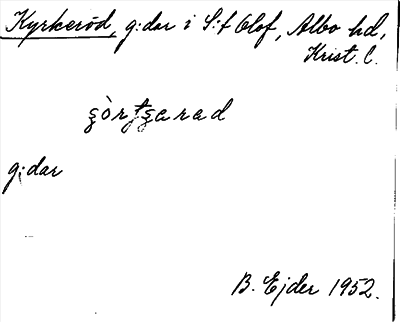 Kyrkeröd, g:dar i S:t Olof, Albo hd,
Krist. l.
g:dar
B. Ejder 1952.